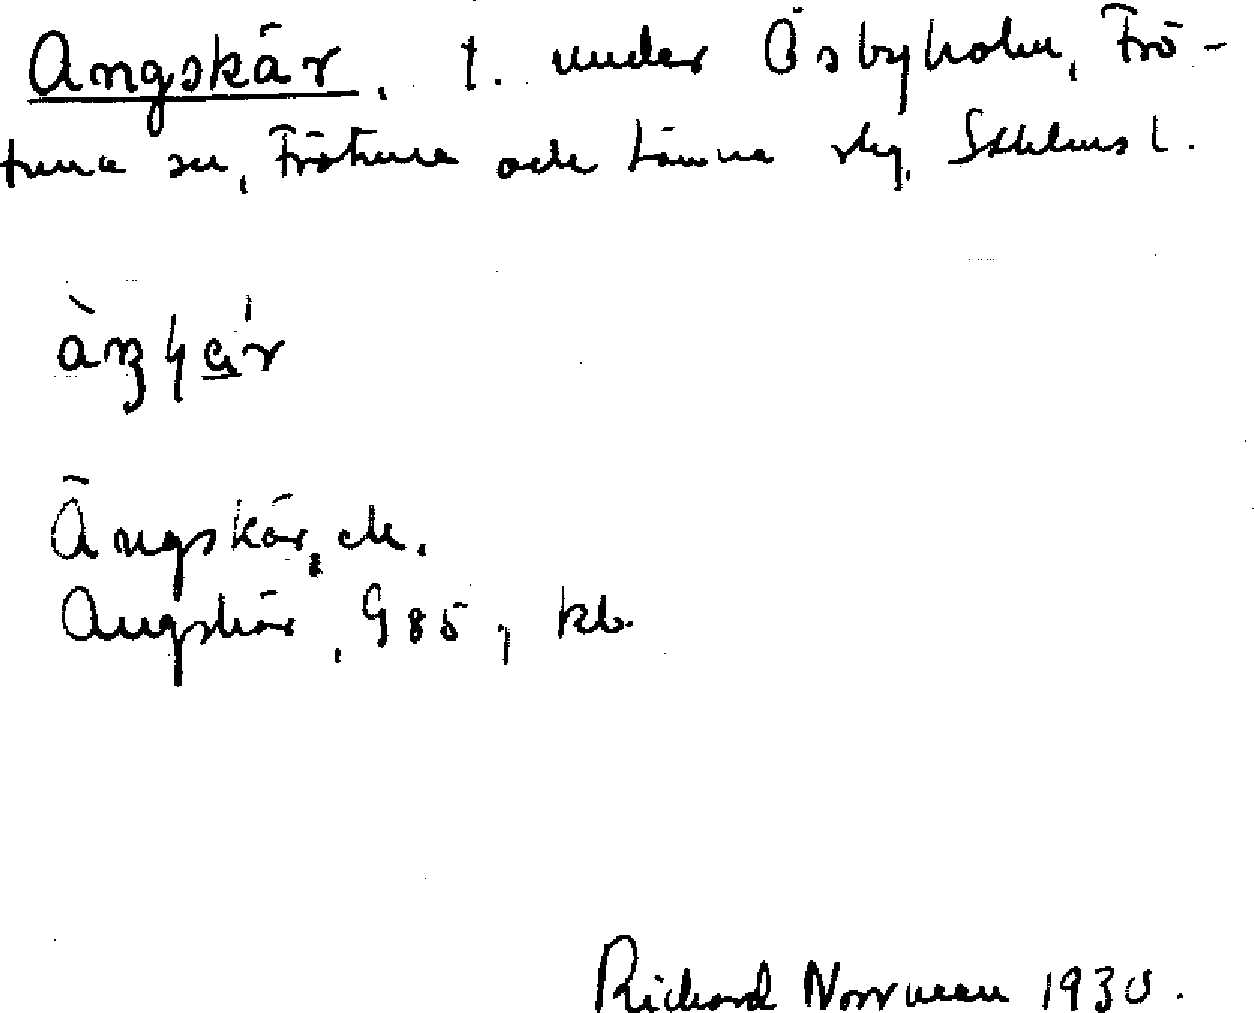 Ängskär, t. under Ösbyholm, Frö-
tuna sn, Frötuna och Länna skg, Sthlms l.
Ängskär, ek.
Ängskär, G 85, kb.
Richard Norrman 1930.